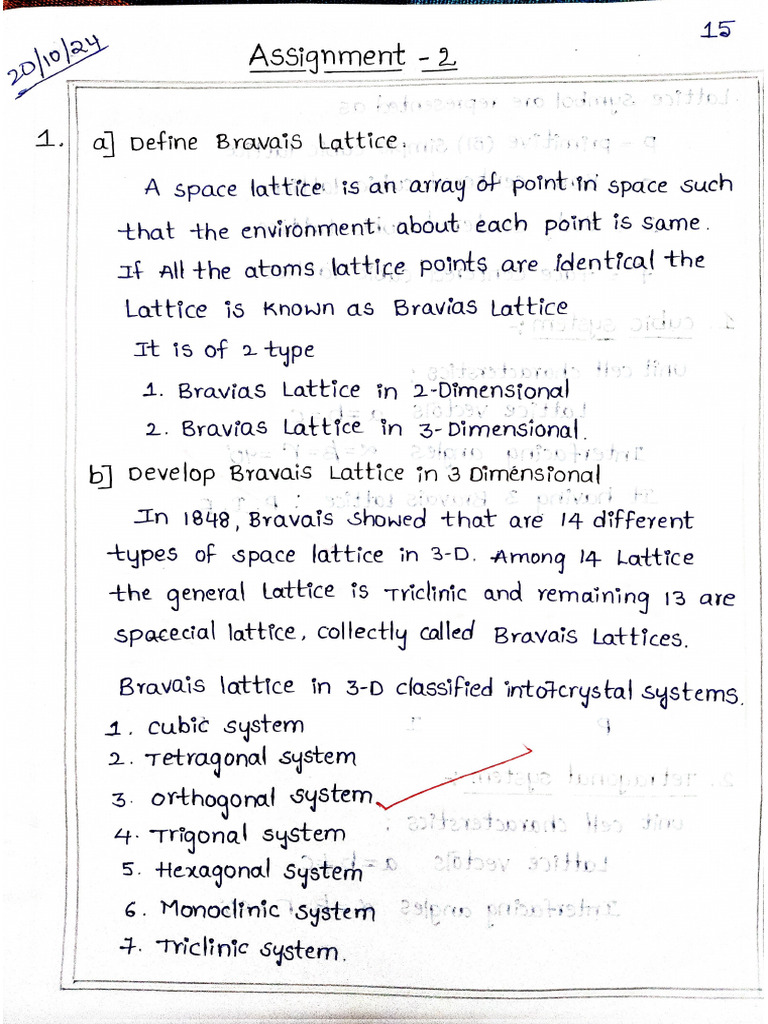 15
20/10/24
Assignment - 2
1. a] Define Bravais Lattice.
A space lattice is an array of point in space such
that the environment about each point is same.
If All the atoms lattice points are identical the
Lattice is known as Bravias Lattice
It is of 2 type
1. Bravias Lattice in 2-Dimensional
2. Bravias Lattice in 3-Dimensional.
b] Develop Bravais Lattice in 3 Dimensional
In 1848, Bravais showed that are 14 different
types of space lattice in 3-D. Among 14 Lattice
the general Lattice is Triclinic and remaining 13 are
spacecial lattice, collectly called Bravais Lattices.
Bravais lattice in 3-D classified into 7 crystal systems.
1. cubic system
2. Tetragonal system
3. orthogonal system
4. Trigonal system
5. Hexagonal system
6. Monoclinic system
7. Triclinic system.